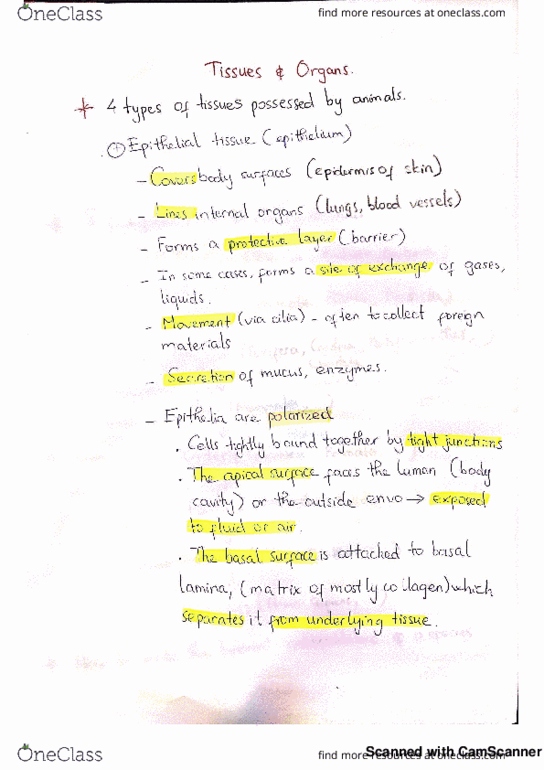 OneClass
find more resources at oneclass.com
Tissues & Organs.
* 4 types of tissues possessed by animals.
① Epithelial tissue (epithelium)
- Covers body surfaces (epidermis of skin)
- Lines internal organs (lungs, blood vessels)
- Forms a protective layer (barrier)
- In some cases, forms a site of exchange of gases,
liquids.
- Movement (via cilia) - often to collect foreign
materials
- Secretion of mucus, enzymes.
- Epithelia are polarized
. Cells tightly bound together by tight junctions
. The apical surface faces the lumen (body
cavity) or the outside envo → exposed
to fluid or air.
. The basal surface is attached to basal
lamina, (matrix of mostly collagen) which
separates it from underlying tissue.
OneClass
find more resources at oneclass.com
Scanned with CamScanner